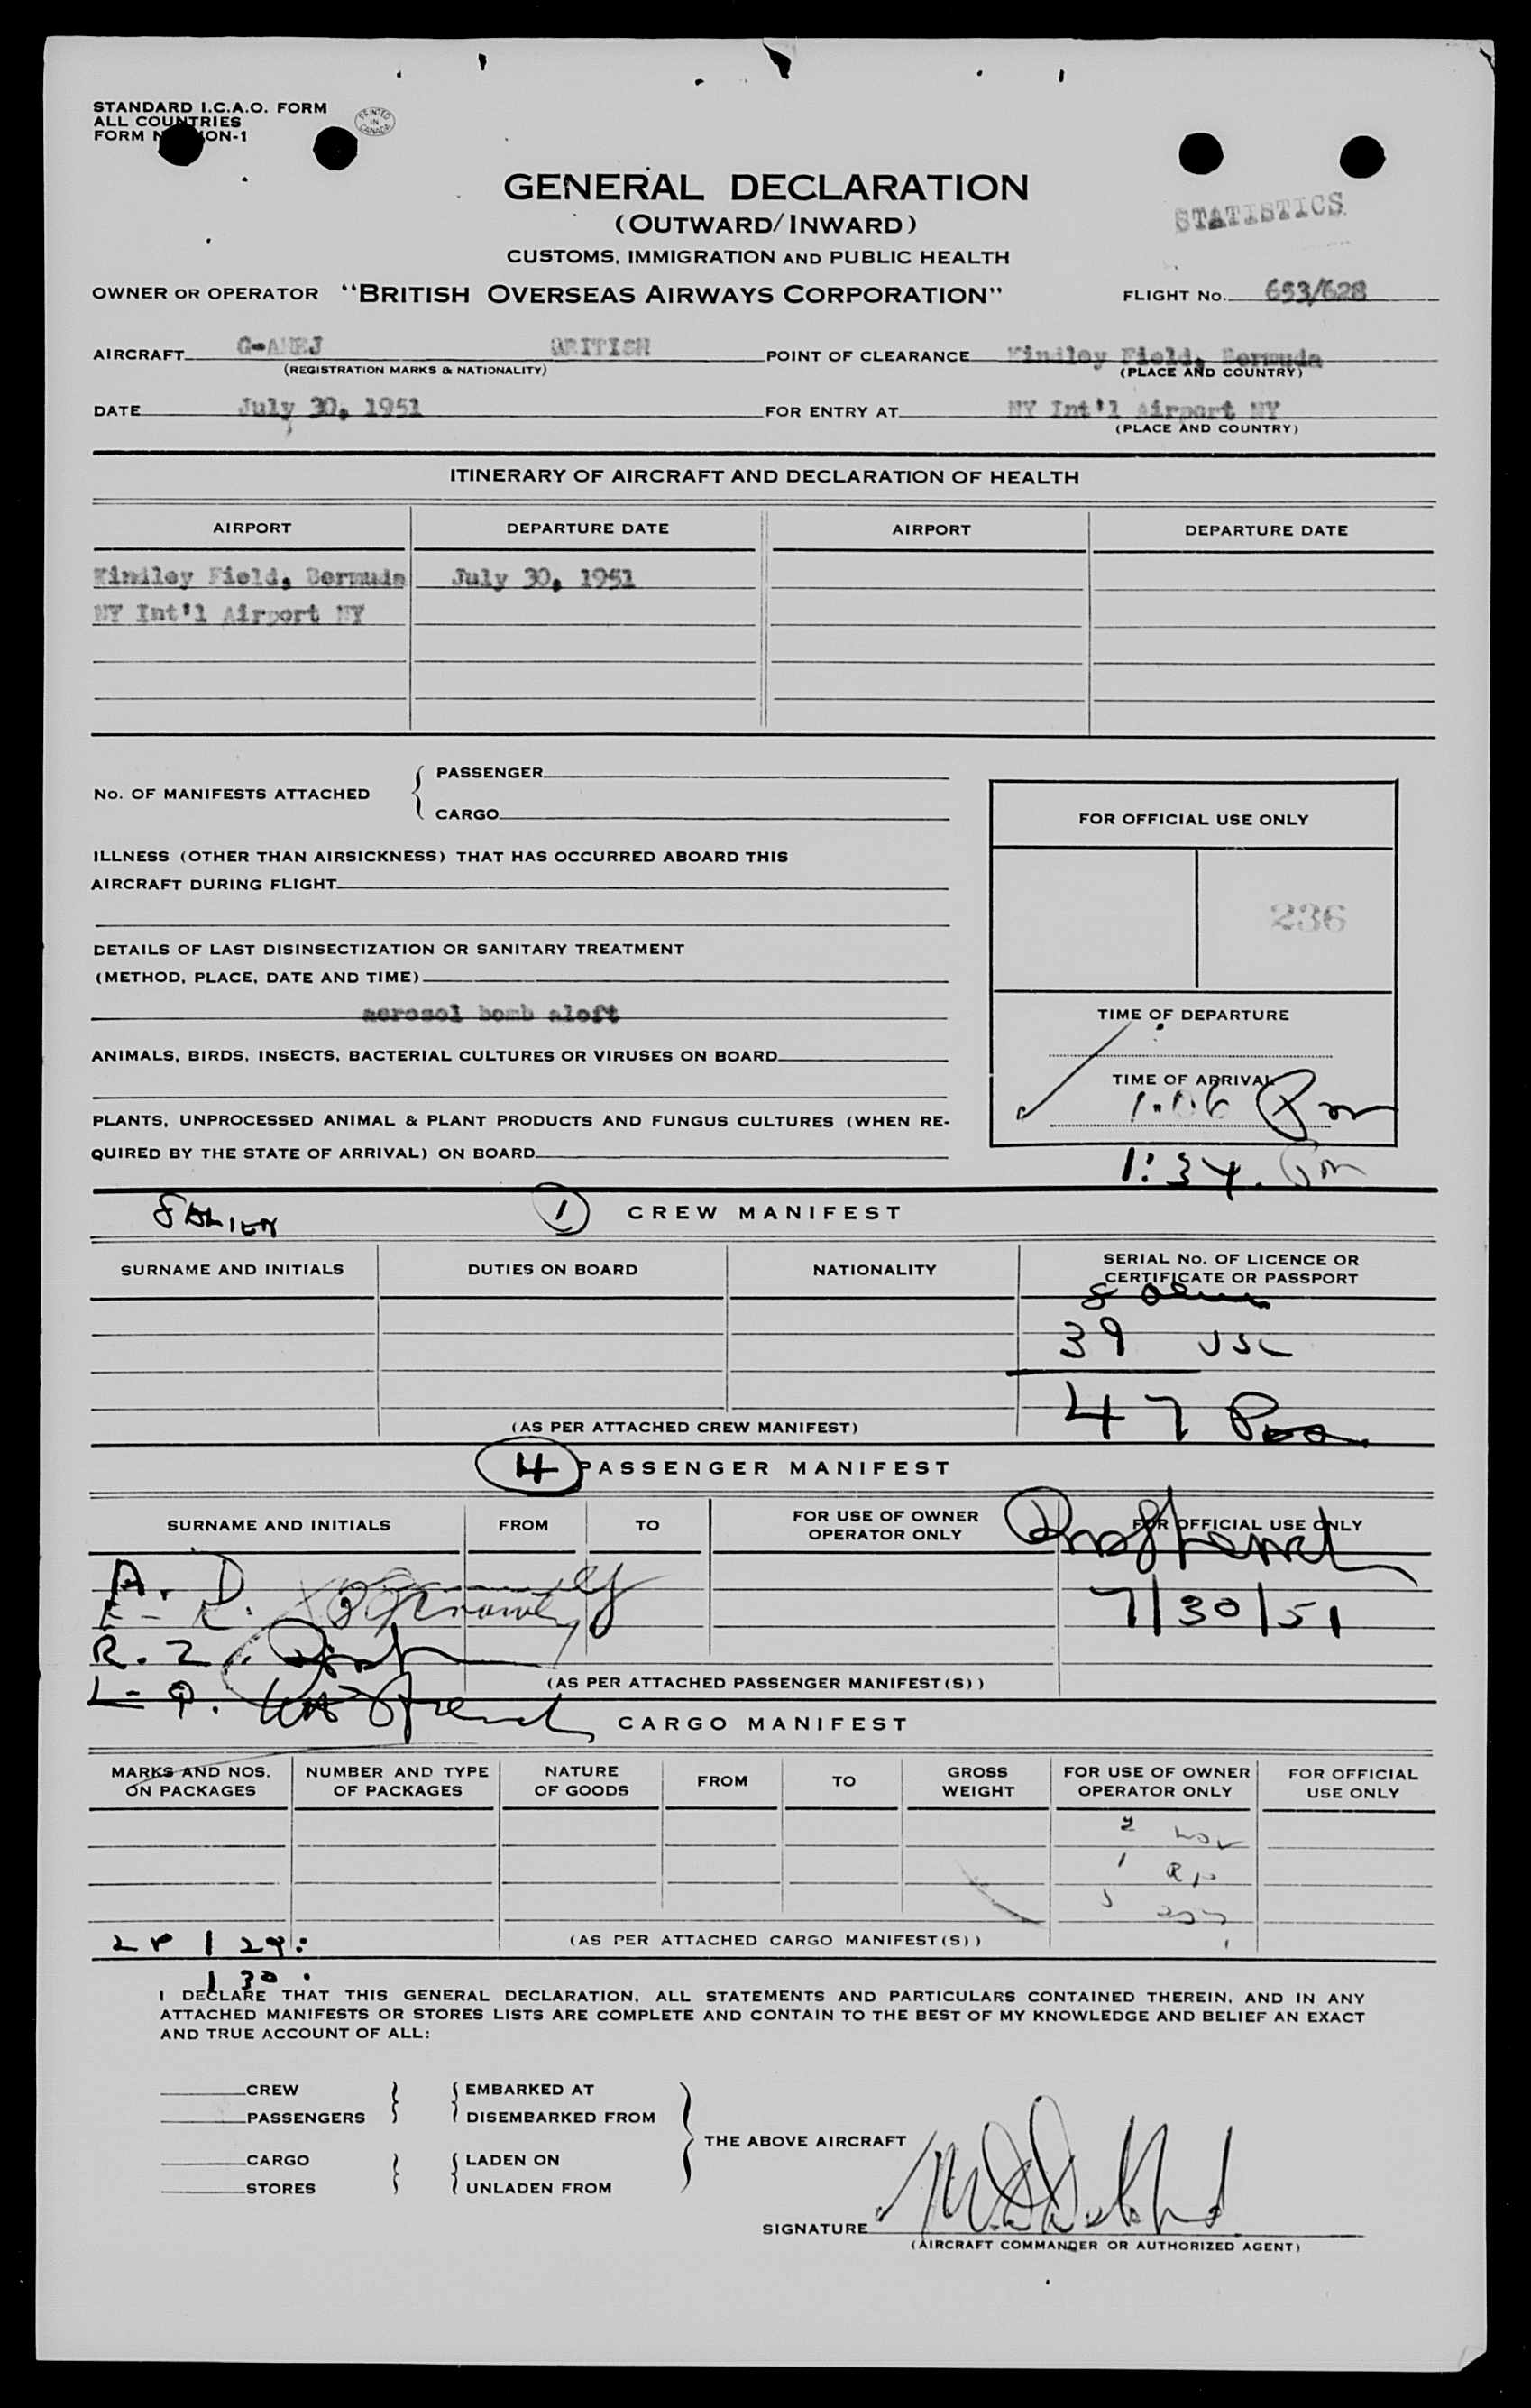 STANDARD I.C.A.O. FORM
ALL COUNTRIES
FORM ON-1
PRINTED IN CANADA
GENERAL DECLARATION
(OUTWARD/INWARD)
STATISTICS
CUSTOMS, IMMIGRATION AND PUBLIC HEALTH
OWNER OR OPERATOR "BRITISH OVERSEAS AIRWAYS CORPORATION" FLIGHT No. 653/628
AIRCRAFT BRITISH POINT OF CLEARANCE Kindley Field, Bermuda
(REGISTRATION MARKS & NATIONALITY) (PLACE AND COUNTRY)
DATE July 30, 1951 FOR ENTRY AT NY Int'l Airport NY
(PLACE AND COUNTRY)
ITINERARY OF AIRCRAFT AND DECLARATION OF HEALTH
AIRPORT DEPARTURE DATE AIRPORT DEPARTURE DATE
Kindley Field, Bermuda July 30, 1951
NY Int'l Airport NY
No. OF MANIFESTS ATTACHED
PASSENGER
CARGO
FOR OFFICIAL USE ONLY
ILLNESS (OTHER THAN AIRSICKNESS) THAT HAS OCCURRED ABOARD THIS
AIRCRAFT DURING FLIGHT
236
DETAILS OF LAST DISINSECTIZATION OR SANITARY TREATMENT
(METHOD, PLACE, DATE AND TIME)
aerosol bomb aloft
TIME OF DEPARTURE
ANIMALS, BIRDS, INSECTS, BACTERIAL CULTURES OR VIRUSES ON BOARD
TIME OF ARRIVAL
1:06 Pm
PLANTS, UNPROCESSED ANIMAL & PLANT PRODUCTS AND FUNGUS CULTURES (WHEN RE-
QUIRED BY THE STATE OF ARRIVAL) ON BOARD
1:34. Pm
8 ALIEN 1 CREW MANIFEST
SURNAME AND INITIALS DUTIES ON BOARD NATIONALITY SERIAL No. OF LICENCE OR
CERTIFICATE OR PASSPORT
8 Alien
39 USC
47
(AS PER ATTACHED CREW MANIFEST)
4 PASSENGER MANIFEST
SURNAME AND INITIALS FROM TO FOR USE OF OWNER
OPERATOR ONLY FOR OFFICIAL USE ONLY
A. D.
7/30/51
R. Z.
(AS PER ATTACHED PASSENGER MANIFEST(S))
CARGO MANIFEST
MARKS AND NOS.
ON PACKAGES NUMBER AND TYPE
OF PACKAGES NATURE
OF GOODS FROM TO GROSS
WEIGHT FOR USE OF OWNER
OPERATOR ONLY FOR OFFICIAL
USE ONLY
(AS PER ATTACHED CARGO MANIFEST(S))
I DECLARE THAT THIS GENERAL DECLARATION, ALL STATEMENTS AND PARTICULARS CONTAINED THEREIN, AND IN ANY
ATTACHED MANIFESTS OR STORES LISTS ARE COMPLETE AND CONTAIN TO THE BEST OF MY KNOWLEDGE AND BELIEF AN EXACT
AND TRUE ACCOUNT OF ALL:
CREW EMBARKED AT
PASSENGERS DISEMBARKED FROM
THE ABOVE AIRCRAFT
CARGO LADEN ON
STORES UNLADEN FROM
SIGNATURE
(AIRCRAFT COMMANDER OR AUTHORIZED AGENT)